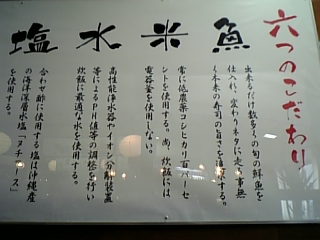 六つのこだわり
魚
出来るだけ数多くの旬の鮮魚を
仕入れ、変わりネタに走る事無
く本来の寿司の旨さを追求する。
米
常に低農薬コシヒカリ百パーセ
ントを使用する。尚、炊飯には
電器釜を使用しない。
水
高性能浄水器やイオン分解装置
等によりPH値等の調整を行い
炊飯に最適な水を使用する。
塩
合わせ酢に使用する塩は沖縄産
の海洋深層水塩「ヌチマース」
を使用する。